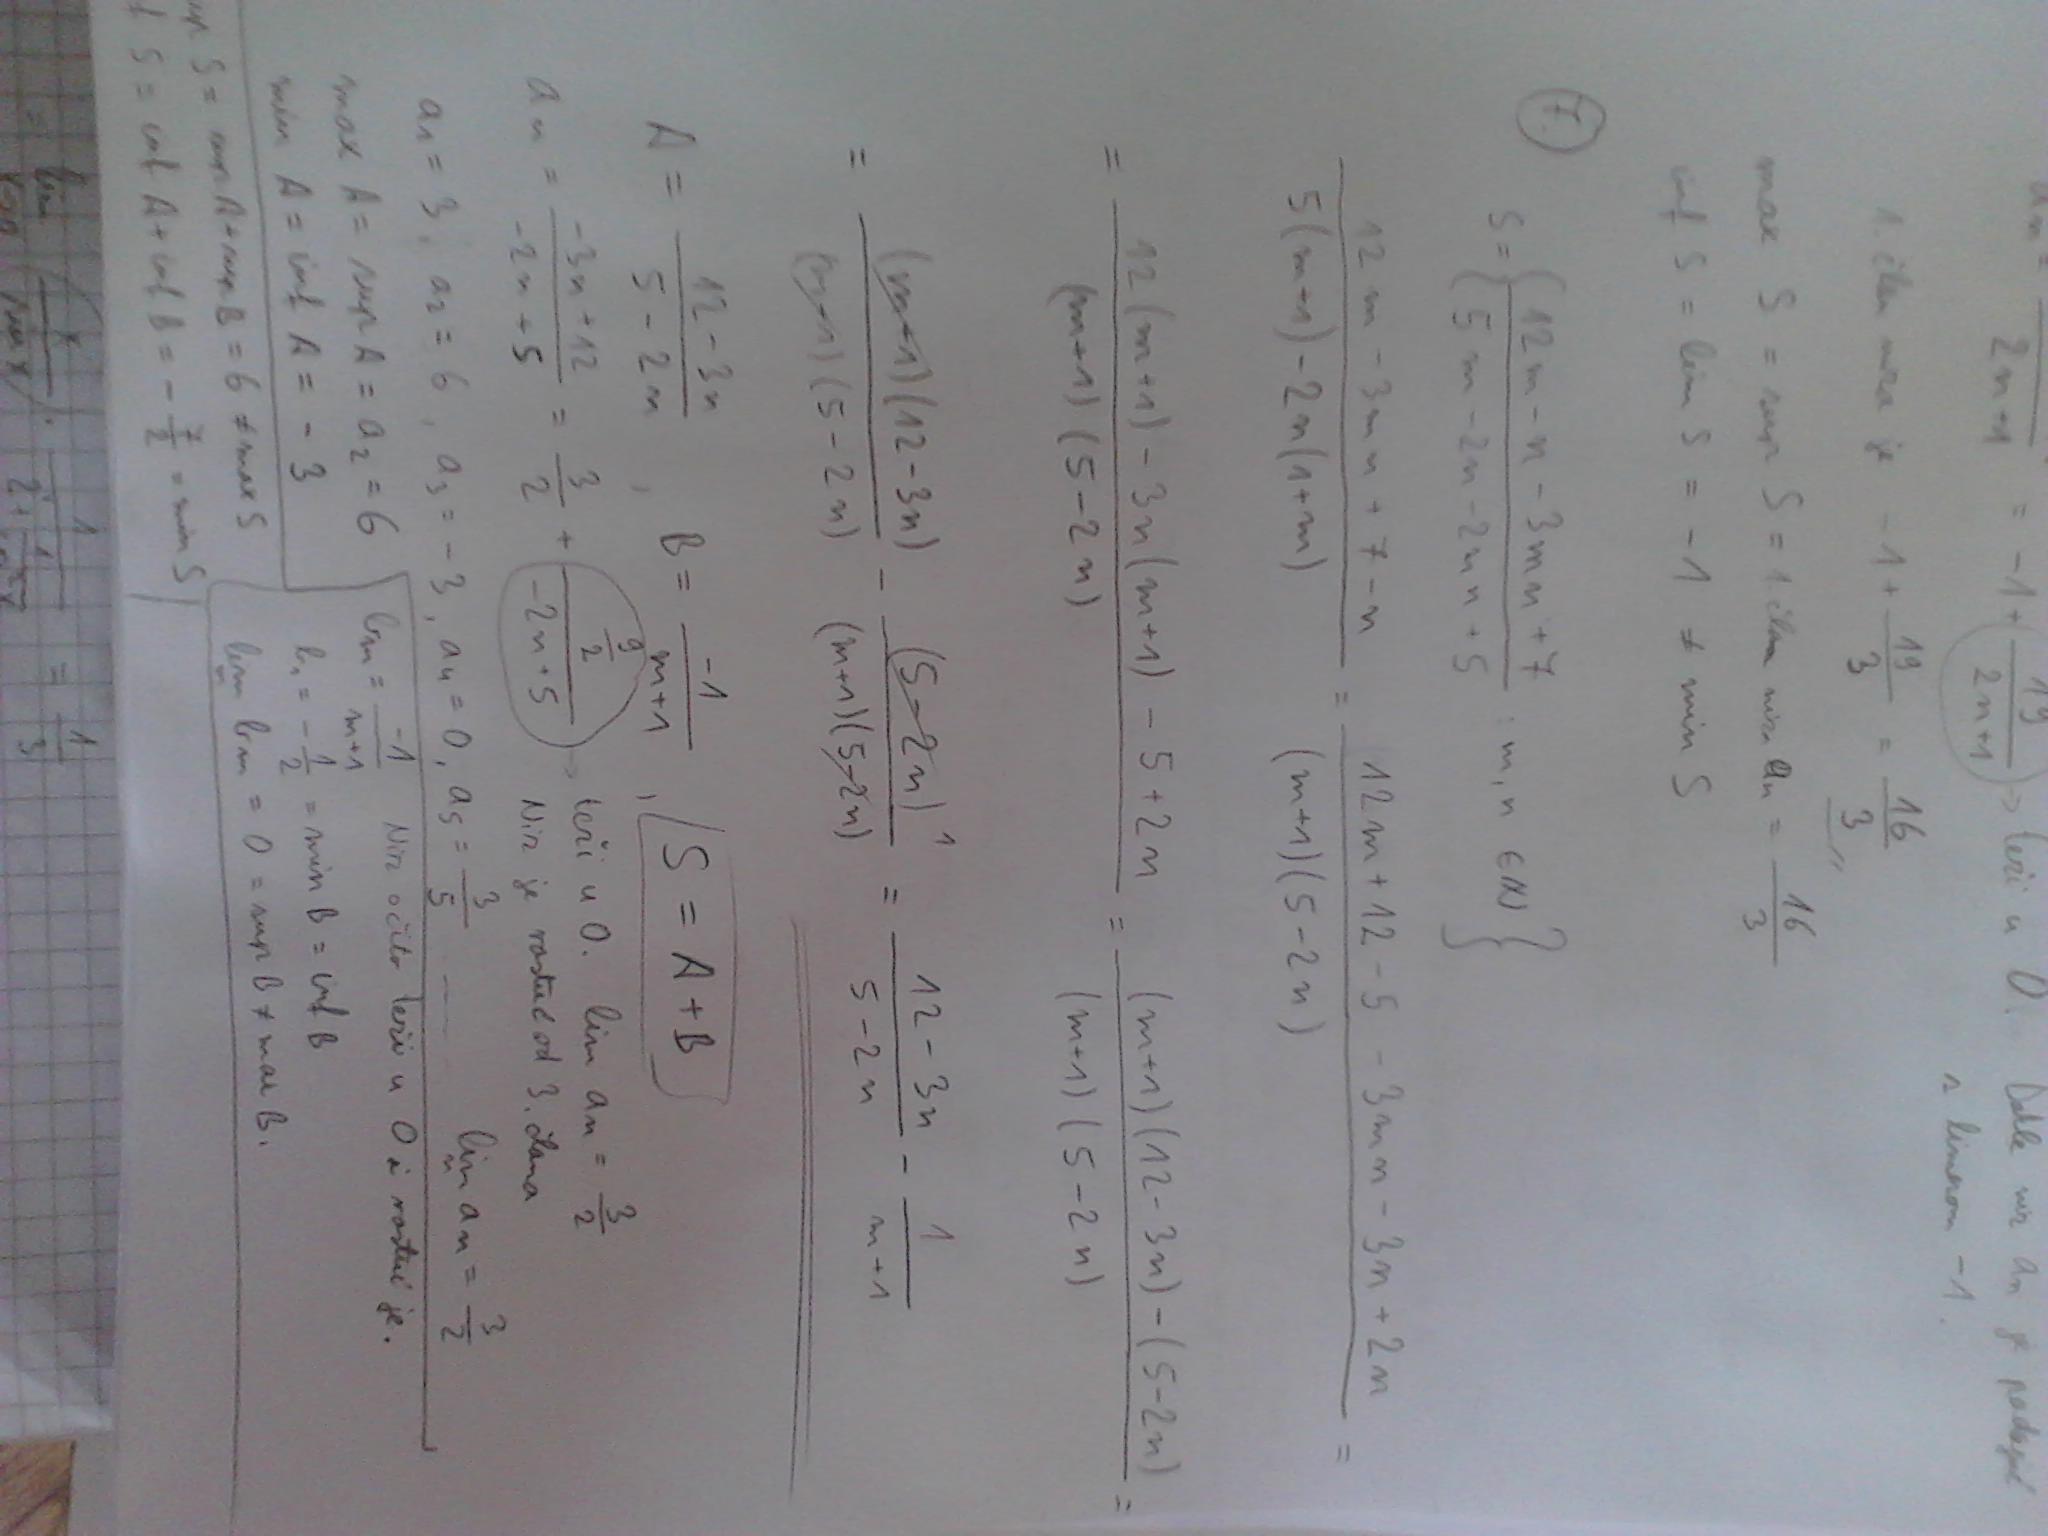 an = / 2n+1 = -1 + 19/(2n+1) -> teži u 0. Dakle niz an je padajuć
s limesom -1.
1. član niza je -1 + 19/3 = 16/3
max S = sup S = 1. član niza an = 16/3
inf S = lim S = -1 ≠ min S
7. S = { (12m - n - 3mn + 7)/(5m - 2n - 2mn + 5) : m, n ∈ N }
(12m - 3mn + 7 - n)/(5(m+1) - 2n(1+m)) = (12m + 12 - 5 - 3mn - 3n + 2n)/((m+1)(5-2n)) =
= (12(m+1) - 3n(m+1) - 5 + 2n)/((m+1)(5-2n)) = ((m+1)(12-3n) - (5-2n))/((m+1)(5-2n)) =
= ((m+1)(12-3n))/((m+1)(5-2n)) - (5-2n)^1/((m+1)(5-2n)) = (12-3n)/(5-2n) - 1/(m+1)
A = (12-3n)/(5-2n) , B = -1/(m+1) , S = A+B
an = (-3n+12)/(-2n+5) = 3/2 + (9/2)/(-2n+5) -> teži u 0. lim an = 3/2
Niz je rastuć od 3. člana
a1 = 3, a2 = 6, a3 = -3, a4 = 0, a5 = 3/5 .... lim n an = 3/2
max A = sup A = a2 = 6
min A = inf A = -3
bm = -1/(m+1) Niz očito teži u 0 i rastuć je.
b1 = -1/2 = min B = inf B
lim m bm = 0 = sup B ≠ max B.
sup S = sup A + sup B = 6 ≠ max S
inf S = inf A + inf B = -7/2 = min S
= lim x/sin x · 1/ = 1/3